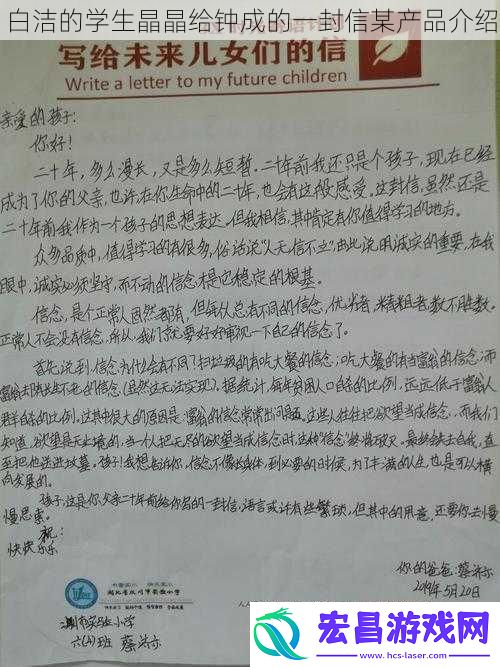 白洁的学生晶晶给钟成的一封信某产品介绍
写给未来儿女们的信
Write a letter to my future children
亲爱的孩子:
你好!
二十年,多么漫长,又是多么短暂。二十年前我还只是个孩子,现在已经
成为了你的父亲,也许在你生命中的二十年,也会有这般感受。这封信,虽然还是
二十年前我作为一个孩子的思想表达,但我相信,其中肯定有你值得学习的地方。
众多品质中,值得学习的有很多,俗话说"人无信不立",由此说明诚实的重要,在我
眼中,诚实必须坚守,而不动的信念才是它稳定的根基。
信念,是个正常人固然都有,但每从总有不同的信念,优者,精粗者数不胜数。
正常人不会没有信念,所以,我们就要好好审视一下自己的信念了。
首先说到信念为什么会有不同?扫垃圾的有吃大餐的信念;吃大餐的有当富翁的信念;而
富翁却有长生不老的信念(虽然这无法实现)。据统计,每年贫困人口自杀的比例,远远低于富人
自杀的比例。这其中很大的原因是:富翁的信念常常出问题。这些人往往把欲望当成信念,而我们
知道,欲望是无止境的,当一个人把无尽的欲望当成信念时,这份"信念"终将破灭。最终会失去自我,直
至把他送进坟墓。孩子!我想告诉你,信念不像身体,到必要的时候,为了丰满的人生,也是可以横
向发展的。
孩子,这是你父亲二十年前给你写的一封信,语言或许有些繁琐,但其中的用意,还要你去慢
慢思索。
祝:
快快乐乐
你的爸爸:蔡
2019年5月20日
湖北省汉川市实验小学
实验小学
六(4)班 蔡
宏昌游戏网
www.hcs-laser.com